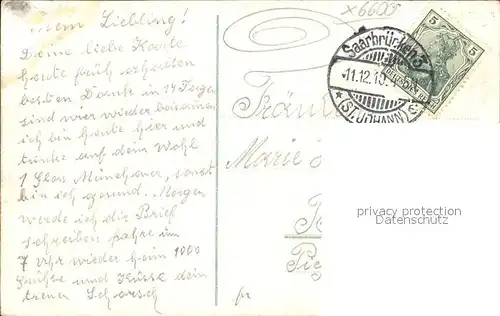 mein Liebling!
Deine liebe Karte
heute früh erhalten
besten Dank in 14 Tagen
sind wir wieder beisammen
ich bin heute hier und
trinke auf dein Wohl
1 Glas Münchner, sonst
bin ich gesund. Morgen
werde ich dir Brief
schreiben fahre um
7 Uhr wieder heim 1000
Grüße und Küsse dein
treuer Schorsch
x6600
Saarbrücken 3
11.12.10.
* (ST. JOHANN)
5 5
Fräule
Marie
privacy protection
Datenschutz